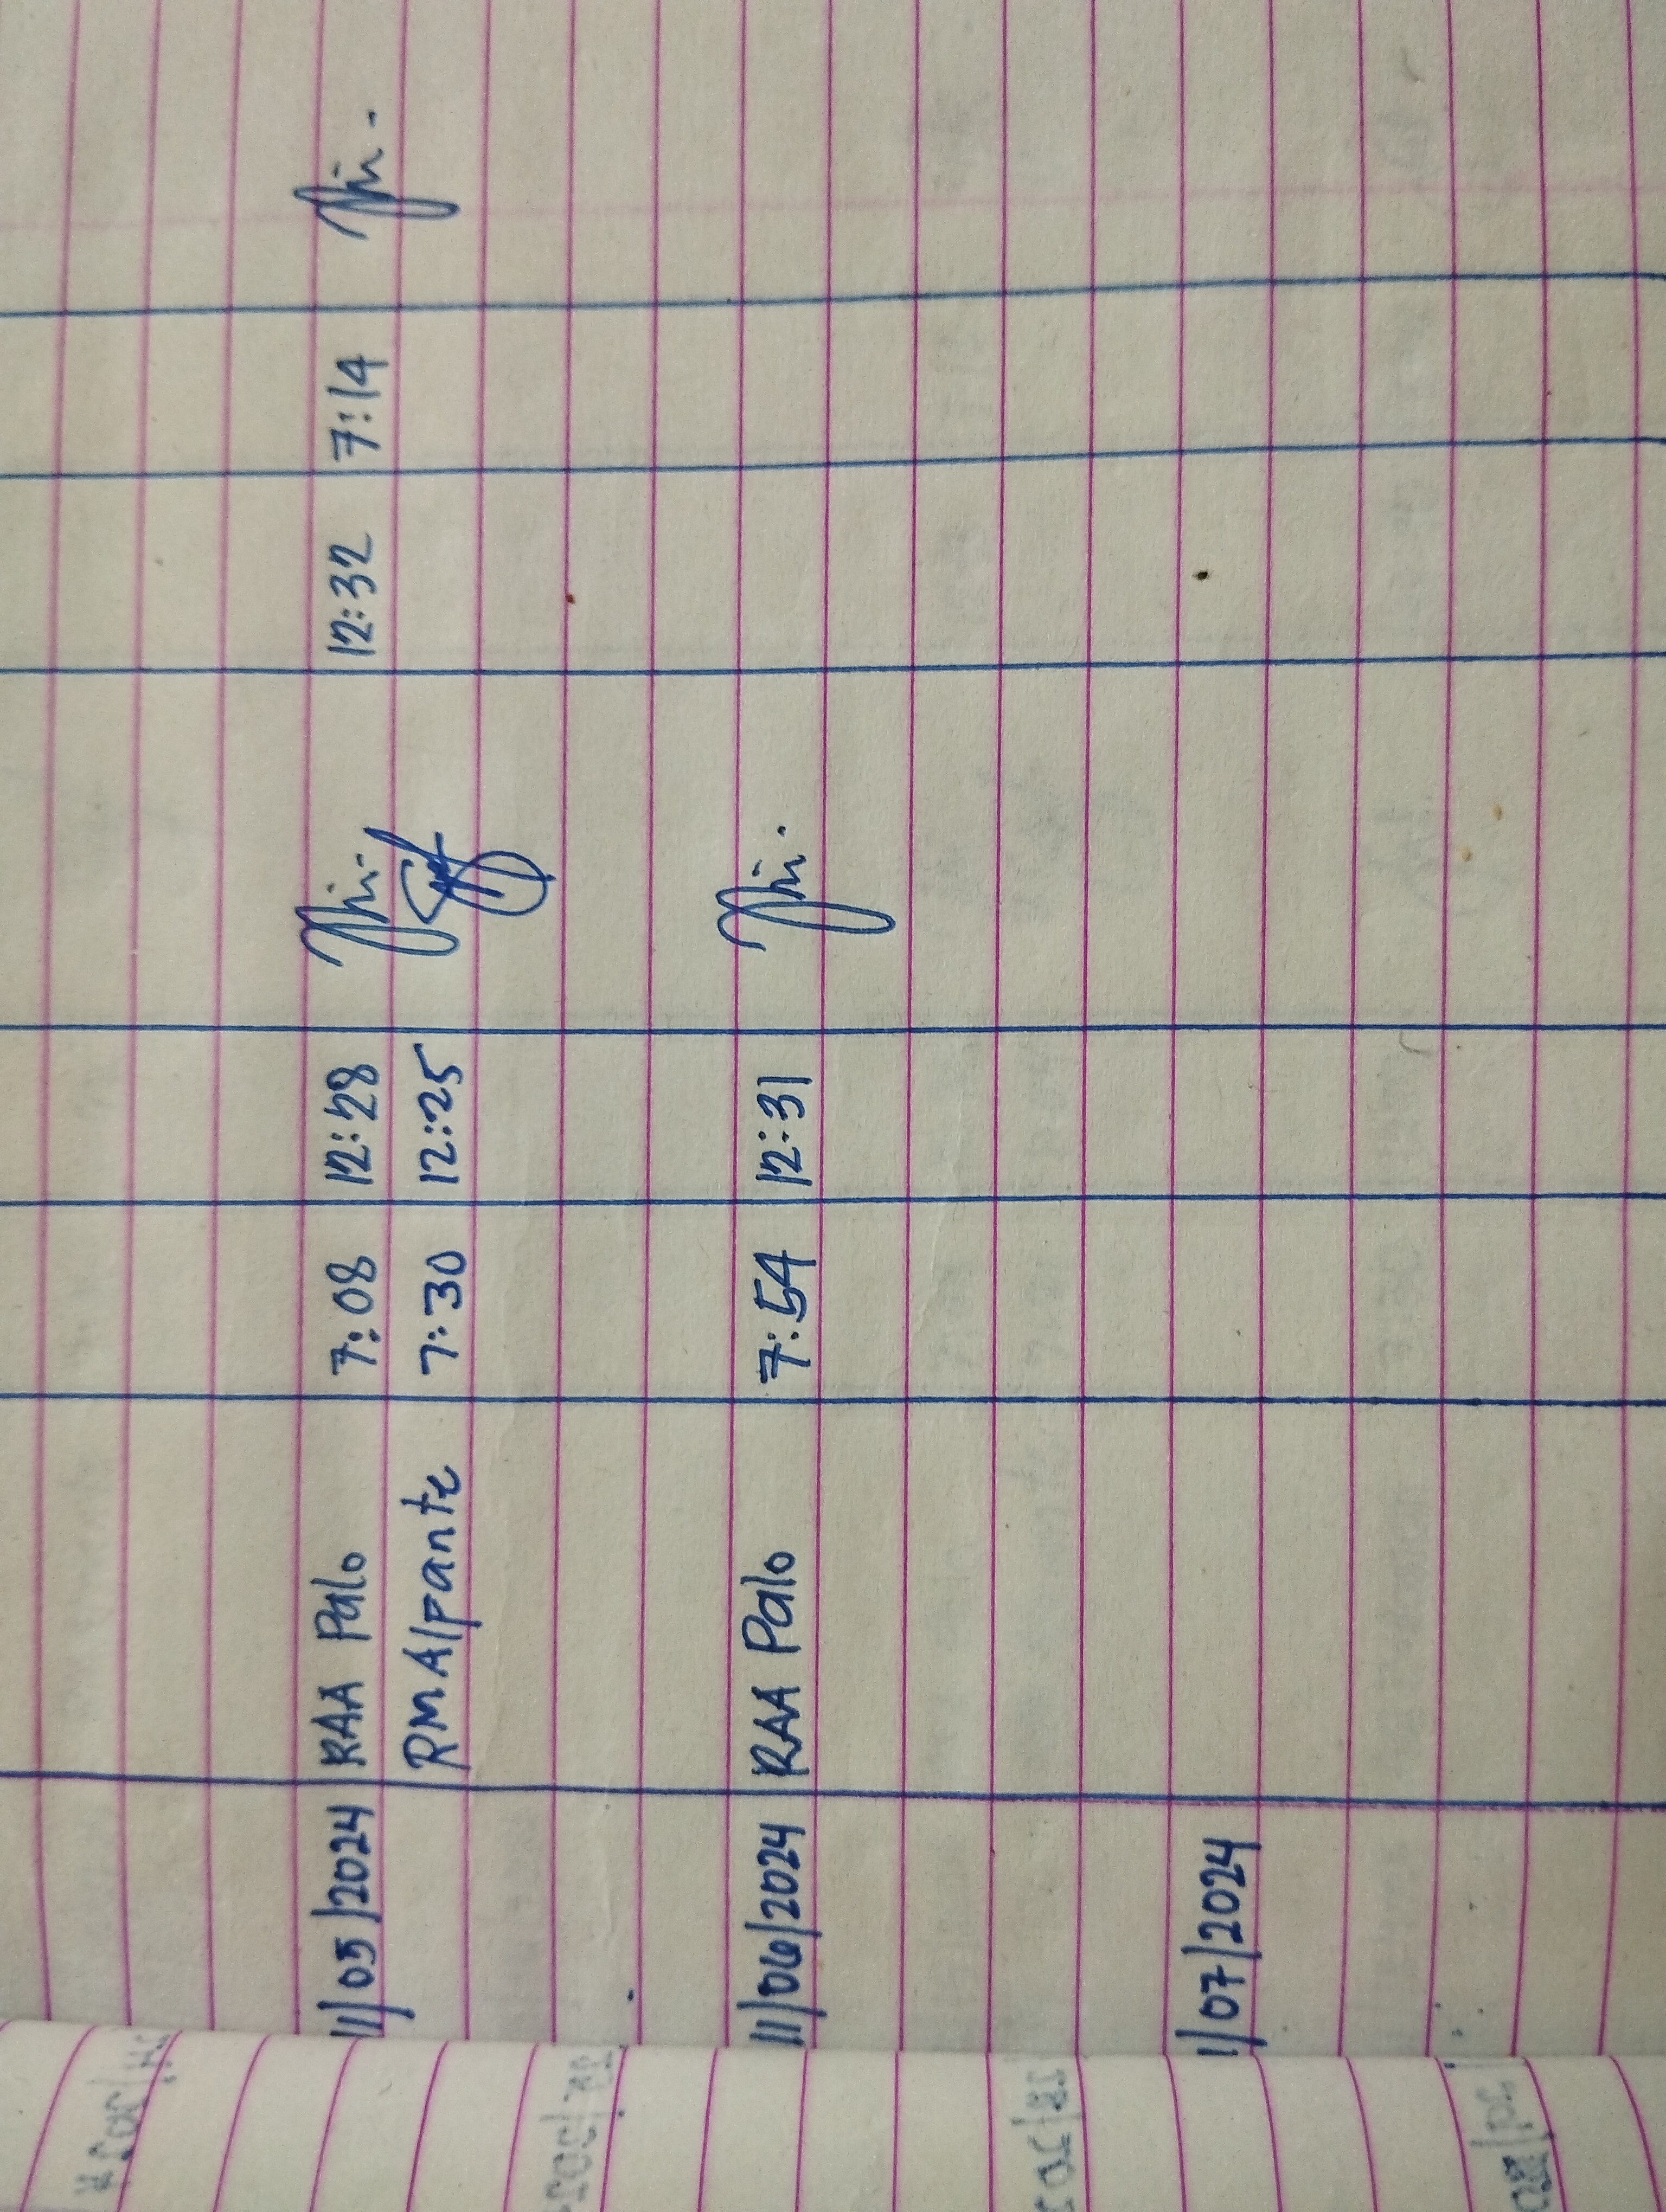 11/05/2024 RAA Palo 7:08 12:28 12:32 7:14
RM Alpante 7:30 12:25
11/06/2024 RAA Palo 7:54 12:31
11/07/2024